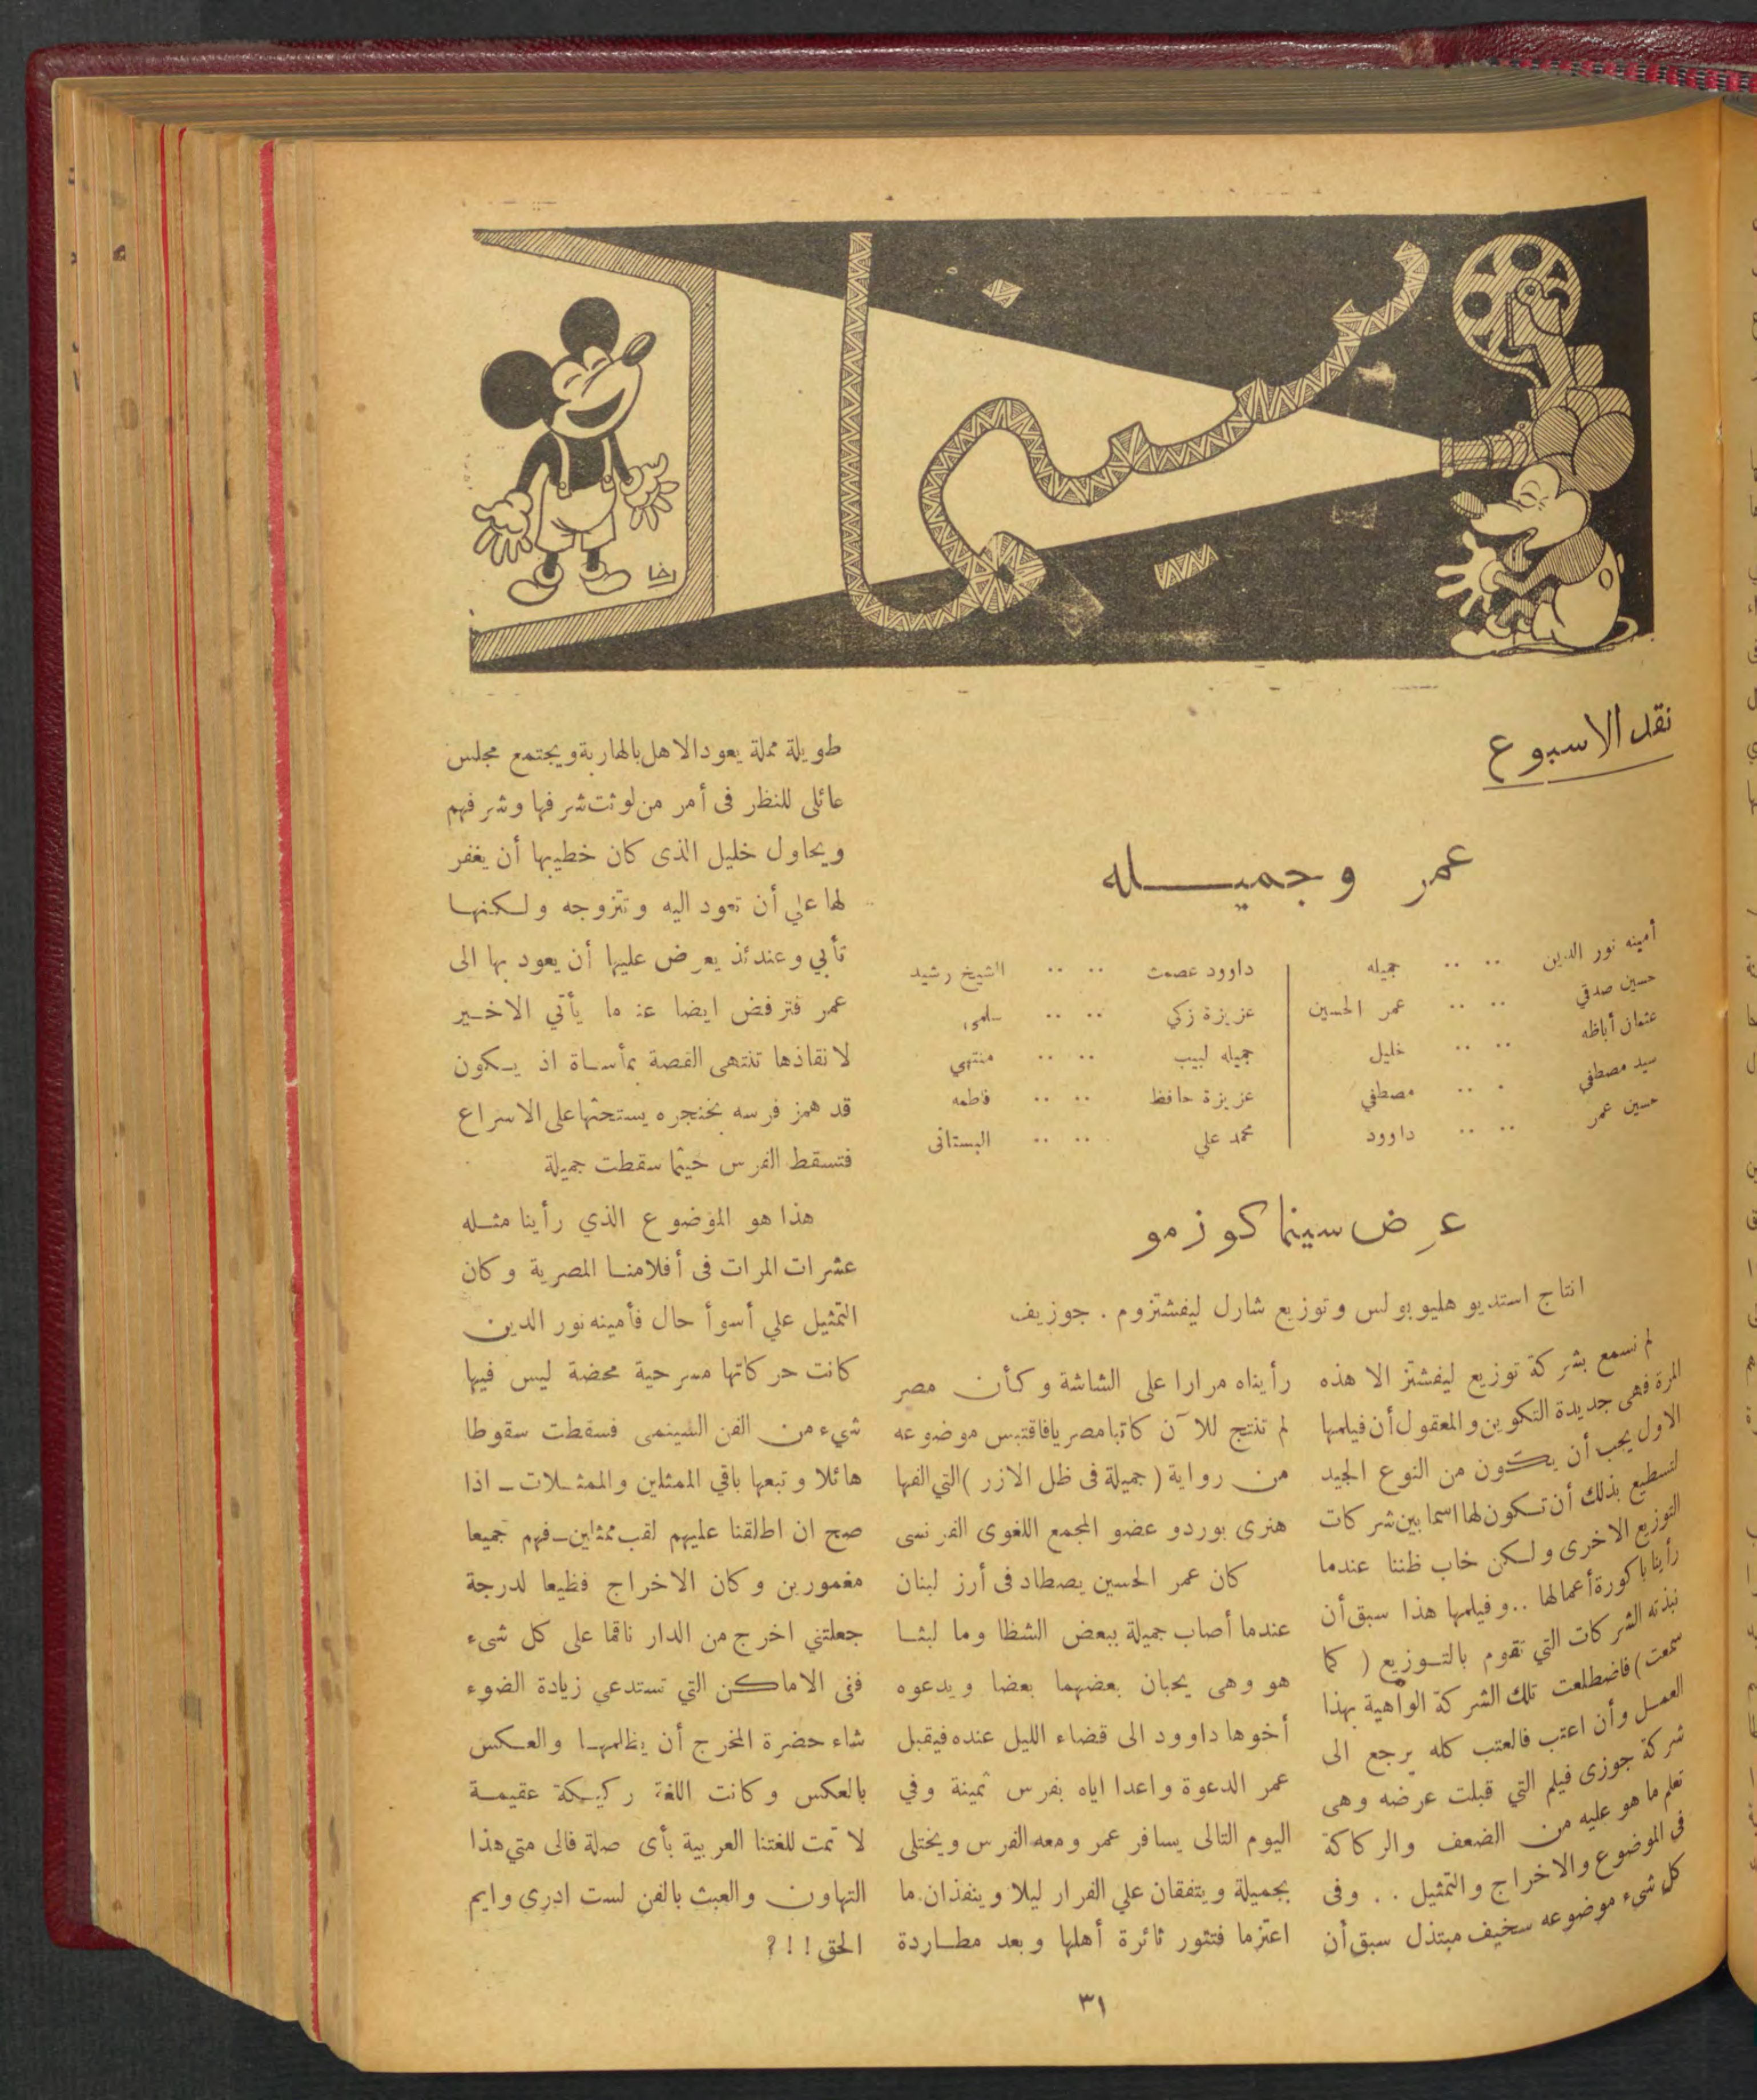 سينما
رخا
نقد الاسبوع
عمر وجميــــله
أمينه نور الدين .. .. جميله
حسين صدقي .. .. عمر الحسين
عثمان أباظه .. .. خليل
سيد مصطفي . .. مصطفي
حسين عمر .. .. داوود
داوود عصمت .. .. الشيخ رشيد
عزيزة زكي .. .. سلمى
جميله لبيب .. .. منتهي
عزيزة حافظ .. .. فاطمه
محمد علي .. .. البستانى
عرض سينما كوزمو
انتاج استديو هليوبولس وتوزيع شارل ليفشتزوم . جوزيف
لم نسمع بشركة توزيع ليفشتز الا هذه
المرة فهى جديدة التكوين والمعقول أن فيلمها
الاول يجب أن يكون من النوع الجيد
لتسطيع بذلك أن تكون لها اسما بين شركات
التوزيع الاخرى ولكن خاب ظننا عندما
رأينا باكورة أعمالها .. وفيلمها هذا سبق أن
نبذته الشركات التي تقوم بالتوزيع ( كما
سمعت ) فاضطلعت تلك الشركة الواهية بهذا
العمل وأن اعتب فالعتب كله يرجع الى
شركة جوزى فيلم التي قبلت عرضه وهى
تعلم ما هو عليه من الضعف والركاكة
فى الموضوع والاخراج والتمثيل . . وفى
كل شىء موضوعه سخيف مبتذل سبق أن
رأيناه مرارا على الشاشة وكأن مصر
لم تنتج للآن كاتبا مصريا فاقتبس موضوعه
من رواية ( جميلة فى ظل الازر ) التي الفها
هنرى بوردو عضو المجمع اللغوى الفرنسى
كان عمر الحسين يصطاد فى أرز لبنان
عندما أصاب جميلة ببعض الشظا وما لبثا
هو وهى يحبان بعضهما بعضا ويدعوه
أخوها داوود الى قضاء الليل عنده فيقبل
عمر الدعوة واعدا اياه بفرس ثمينة وفي
اليوم التالى يسافر عمر ومعه الفرس ويختلى
بجميلة ويتفقان علي الفرار ليلا وينفذان ما
اعتزما فتثور ثائرة أهلها وبعد مطاردة
طويلة مملة يعود الاهل بالهاربة ويجتمع مجلس
عائلى للنظر فى أمر من لوثت شرفها وشرفهم
ويحاول خليل الذى كان خطيبها أن يغفر
لها علي أن تعود اليه وتتزوجه ولكنها
تأبي وعندئذ يعرض عليها أن يعود بها الى
عمر فترفض ايضا عند ما يأتي الاخير
لانقاذها تنتهى القصة بمأساة اذ يكون
قد همز فرسه بخنجره يستحثها على الاسراع
فتسقط الفرس حيثما سقطت جميلة
هذا هو الموضوع الذي رأينا مثله
عشرات المرات فى أفلامنا المصرية وكان
التمثيل علي أسوأ حال فأمينه نور الدين
كانت حركاتها مسرحية محضة ليس فيها
شيء من الفن السينمى فسقطت سقوطا
هائلا وتبعها باقي الممثلين والممثلات ـ اذا
صح ان اطلقنا عليهم لقب ممثلين ـ فهم جميعا
مغمورين وكان الاخراج فظيعا لدرجة
جعلتني اخرج من الدار ناقما على كل شىء
ففى الاماكن التي تستدعي زيادة الضوء
شاء حضرة المخرج أن يظلمها والعكس
بالعكس وكانت اللغة ركيكة عقيمة
لا تمت للغتنا العربية بأى صلة فالى متي هذا
التهاون والعبث بالفن لست ادرى وايم
الحق ! ! ؟
٣١